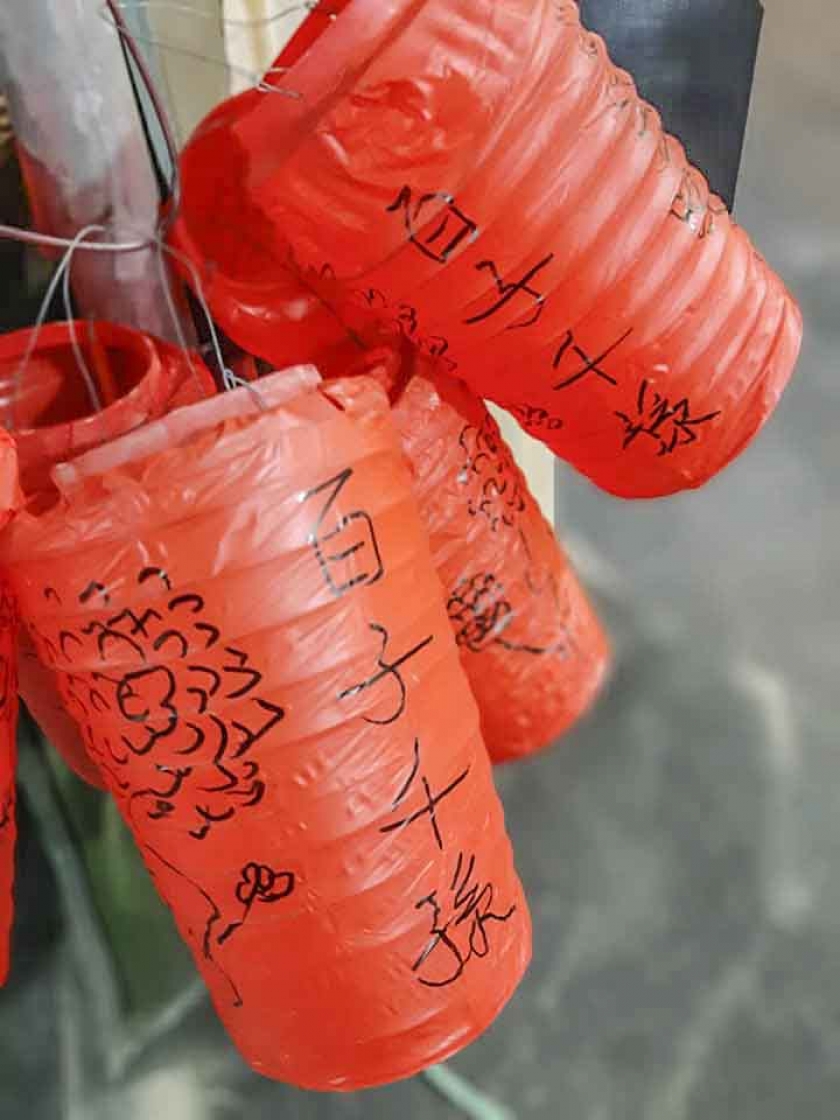 百子千孫
百子千孫